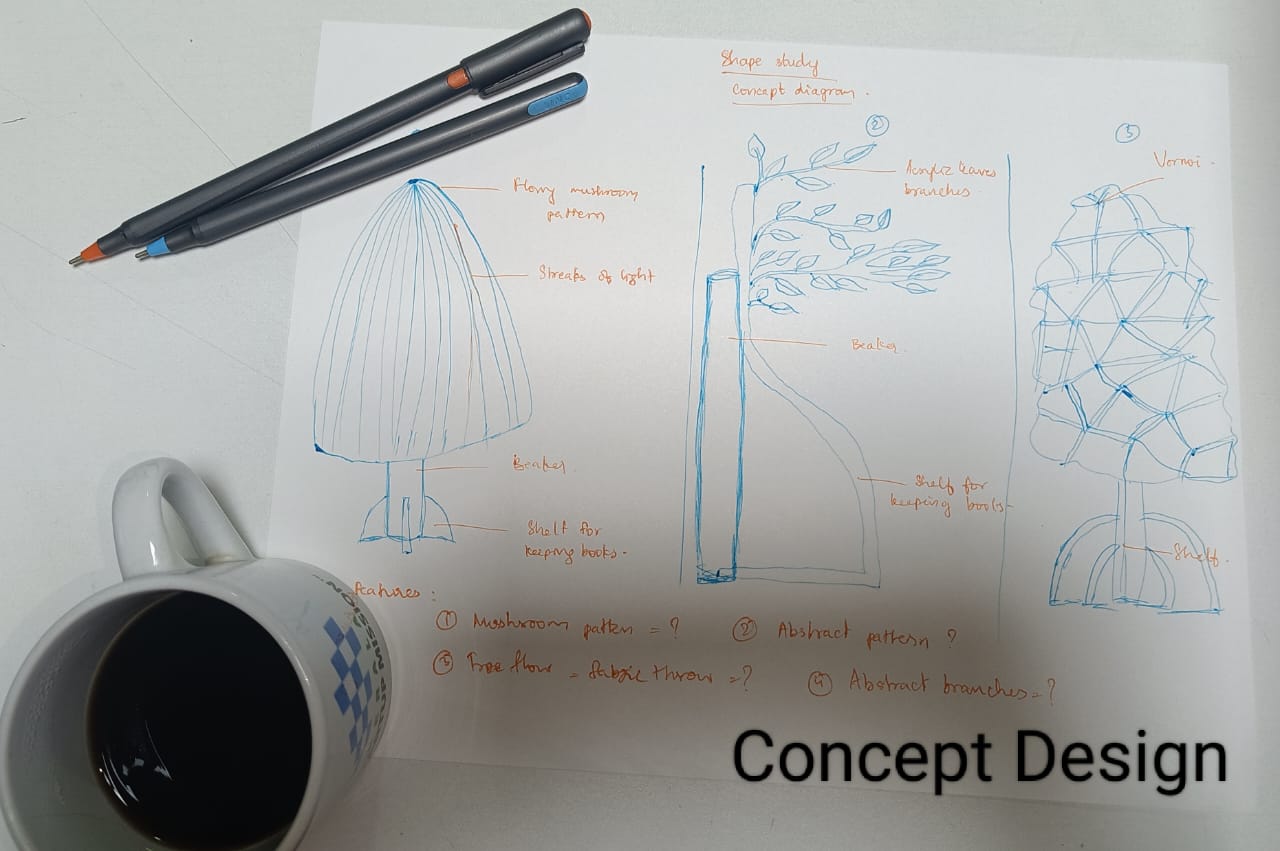 Shape study
Concept diagram.
②
③
Flowy mushroom
pattern
Streaks of light
Beaker
Shelf for
keeping books.
Acrylic leaves
branches
Beaker
Shelf for
keeping books
Vornoi
Shelf
Features :
① Mushroom pattern = ?
② Abstract pattern ?
③ Free flow = fabric throw = ?
④ Abstract branches = ?
Concept Design